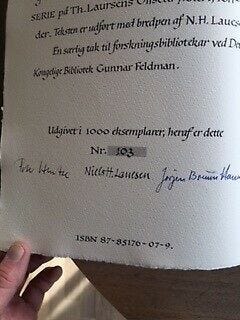 SERIE på Th. Laursens
der. Teksten er udført med bredpen af N.H.
En særlig tak til forskningsbibliotekar ved De
Kongelige Bibliotek Gunnar Feldman.
Udgivet i 1000 eksemplarer, heraf er dette
Nr. 303
Niels H. Jørgen Bruun
ISBN 87-85176-07-9.